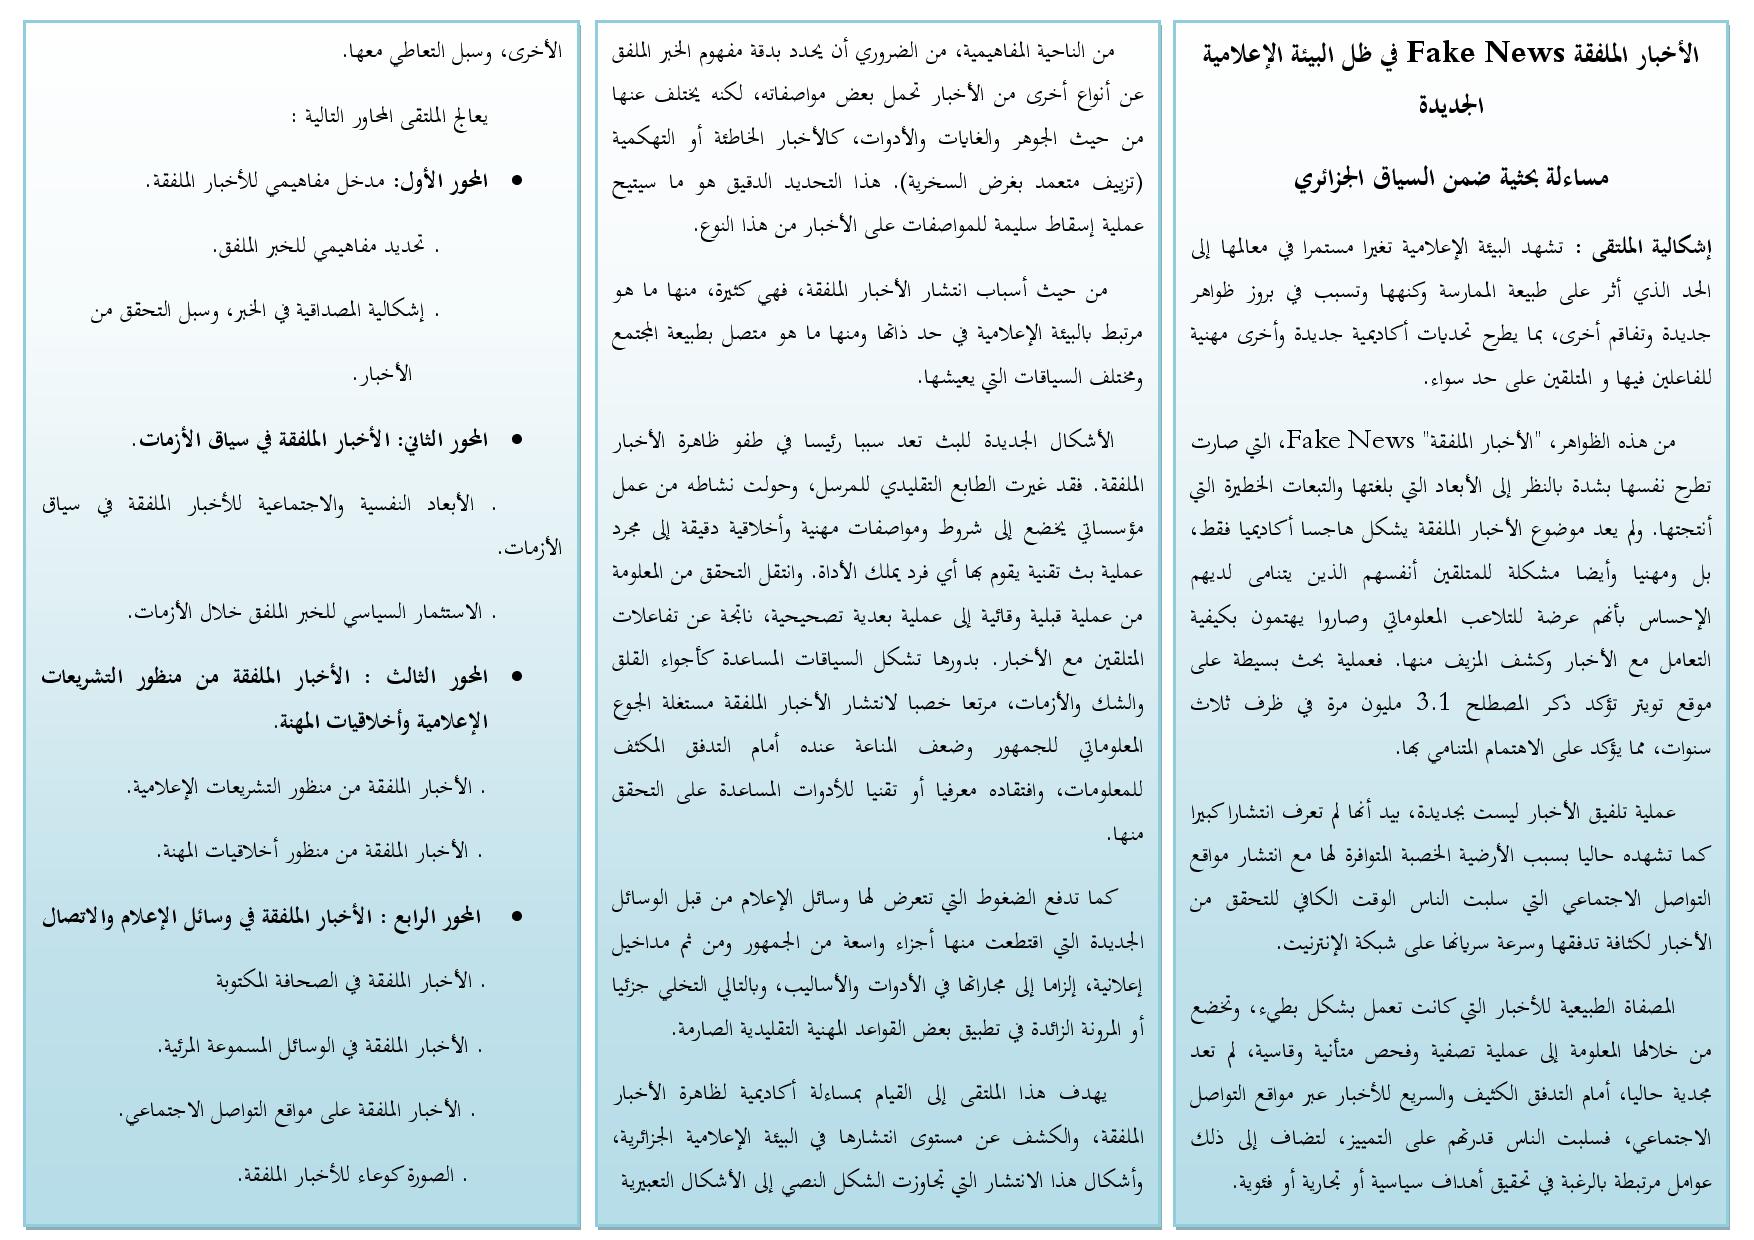 الأخبار الملفقة Fake News في ظل البيئة الإعلامية
الجديدة
مساءلة بحثية ضمن السياق الجزائري
إشكالية الملتقى : تشهد البيئة الإعلامية تغيرا مستمرا في معالمها إلى
الحد الذي أثر على طبيعة الممارسة وكنهها وتسبب في بروز ظواهر
جديدة وتفاقم أخرى، بما يطرح تحديات أكاديمية جديدة وأخرى مهنية
للفاعلين فيها و المتلقين على حد سواء.
من هذه الظواهر، "الأخبار الملفقة" Fake News، التي صارت
تطرح نفسها بشدة بالنظر إلى الأبعاد التي بلغتها والتبعات الخطيرة التي
أنتجتها. ولم يعد موضوع الأخبار الملفقة يشكل هاجسا أكاديميا فقط،
بل ومهنيا وأيضا مشكلة للمتلقين أنفسهم الذين يتنامى لديهم
الإحساس بأنهم عرضة للتلاعب المعلوماتي وصاروا يهتمون بكيفية
التعامل مع الأخبار وكشف المزيف منها. فعملية بحث بسيطة على
موقع تويتر تؤكد ذكر المصطلح 3.1 مليون مرة في ظرف ثلاث
سنوات، مما يؤكد على الاهتمام المتنامي بها.
عملية تلفيق الأخبار ليست بجديدة، بيد أنها لم تعرف انتشارا كبيرا
كما تشهده حاليا بسبب الأرضية الخصبة المتوافرة لها مع انتشار مواقع
التواصل الاجتماعي التي سلبت الناس الوقت الكافي للتحقق من
الأخبار لكثافة تدفقها وسرعة سريانها على شبكة الإنترنيت.
المصفاة الطبيعية للأخبار التي كانت تعمل بشكل بطيء، وتخضع
من خلالها المعلومة إلى عملية تصفية وفحص متأنية وقاسية، لم تعد
مجدية حاليا، أمام التدفق الكثيف والسريع للأخبار عبر مواقع التواصل
الاجتماعي، فسلبت الناس قدرتهم على التمييز، لتضاف إلى ذلك
عوامل مرتبطة بالرغبة في تحقيق أهداف سياسية أو تجارية أو فئوية.
من الناحية المفاهيمية، من الضروري أن يحدد بدقة مفهوم الخبر الملفق
عن أنواع أخرى من الأخبار تحمل بعض مواصفاته، لكنه يختلف عنها
من حيث الجوهر والغايات والأدوات، كالأخبار الخاطئة أو التهكمية
(تزييف متعمد بغرض السخرية). هذا التحديد الدقيق هو ما سيتيح
عملية إسقاط سليمة للمواصفات على الأخبار من هذا النوع.
من حيث أسباب انتشار الأخبار الملفقة، فهي كثيرة، منها ما هو
مرتبط بالبيئة الإعلامية في حد ذاتها ومنها ما هو متصل بطبيعة المجتمع
ومختلف السياقات التي يعيشها.
الأشكال الجديدة للبث تعد سببا رئيسا في طفو ظاهرة الأخبار
الملفقة. فقد غيرت الطابع التقليدي للمرسل، وحولت نشاطه من عمل
مؤسساتي يخضع إلى شروط ومواصفات مهنية وأخلاقية دقيقة إلى مجرد
عملية بث تقنية يقوم بها أي فرد يملك الأداة. وانتقل التحقق من المعلومة
من عملية قبلية وقائية إلى عملية بعدية تصحيحية، ناتجة عن تفاعلات
المتلقين مع الأخبار. بدورها تشكل السياقات المساعدة كأجواء القلق
والشك والأزمات، مرتعا خصبا لانتشار الأخبار الملفقة مستغلة الجوع
المعلوماتي للجمهور وضعف المناعة عنده أمام التدفق المكثف
للمعلومات، وافتقاده معرفيا أو تقنيا للأدوات المساعدة على التحقق
منها.
كما تدفع الضغوط التي تتعرض لها وسائل الإعلام من قبل الوسائل
الجديدة التي اقتطعت منها أجزاء واسعة من الجمهور ومن ثم مداخيل
إعلانية، إلزاما إلى مجاراتها في الأدوات والأساليب، وبالتالي التخلي جزئيا
أو المرونة الزائدة في تطبيق بعض القواعد المهنية التقليدية الصارمة.
يهدف هذا الملتقى إلى القيام بمساءلة أكاديمية لظاهرة الأخبار
الملفقة، والكشف عن مستوى انتشارها في البيئة الإعلامية الجزائرية،
وأشكال هذا الانتشار التي تجاوزت الشكل النصي إلى الأشكال التعبيرية
الأخرى، وسبل التعاطي معها.
يعالج الملتقى المحاور التالية :
● المحور الأول: مدخل مفاهيمي للأخبار الملفقة.
. تحديد مفاهيمي للخبر الملفق.
. إشكالية المصداقية في الخبر، وسبل التحقق من
الأخبار.
● المحور الثاني: الأخبار الملفقة في سياق الأزمات.
. الأبعاد النفسية والاجتماعية للأخبار الملفقة في سياق
الأزمات.
. الاستثمار السياسي للخبر الملفق خلال الأزمات.
● المحور الثالث : الأخبار الملفقة من منظور التشريعات
الإعلامية وأخلاقيات المهنة.
. الأخبار الملفقة من منظور التشريعات الإعلامية.
. الأخبار الملفقة من منظور أخلاقيات المهنة.
● المحور الرابع : الأخبار الملفقة في وسائل الإعلام والاتصال
. الأخبار الملفقة في الصحافة المكتوبة
. الأخبار الملفقة في الوسائل المسموعة المرئية.
. الأخبار الملفقة على مواقع التواصل الاجتماعي.
. الصورة كوعاء للأخبار الملفقة.